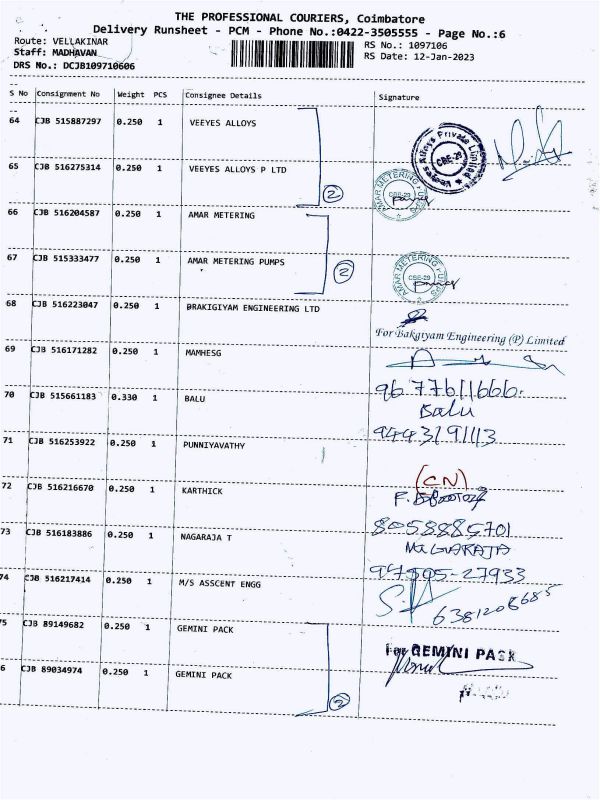 THE PROFESSIONAL COURIERS, Coimbatore
Delivery Runsheet - PCM - Phone No.:0422-3505555 - Page No.:6
Route: VELLAKINAR
RS No.: 1097106
Staff: MADHAVAN
RS Date: 12-Jan-2023
DRS No.: DCJB109710606
S No Consignment No Weight PCS Consignee Details Signature
64 CJB 515887297 0.250 1 VEEYES ALLOYS
Alloys Private Limited
CBE-29
65 CJB 516275314 0.250 1 VEEYES ALLOYS P LTD
2
AMAR METERING PUMPS
CBE-29
66 CJB 516204587 0.250 1 AMAR METERING
67 CJB 515333477 0.250 1 AMAR METERING PUMPS
2
AMAR METERING PUMPS
CBE-29
68 CJB 516223047 0.250 1 BRAKIGIYAM ENGINEERING LTD
For Bakgiyam Engineering (P) Limited
69 CJB 516171282 0.250 1 MAMHESG
9677611666
70 CJB 515661183 0.330 1 BALU
Balu
9443191113
71 CJB 516253922 0.250 1 PUNNIYAVATHY
(CN)
72 CJB 516216670 0.250 1 KARTHICK
8058885701
73 CJB 516183886 0.250 1 NAGARAJA T
NAGARAJA
94505-27933
74 CJB 516217414 0.250 1 M/S ASSCENT ENGG
6381208685
5 CJB 89149682 0.250 1 GEMINI PACK
For GEMINI PACK
6 CJB 89034974 0.250 1 GEMINI PACK
2